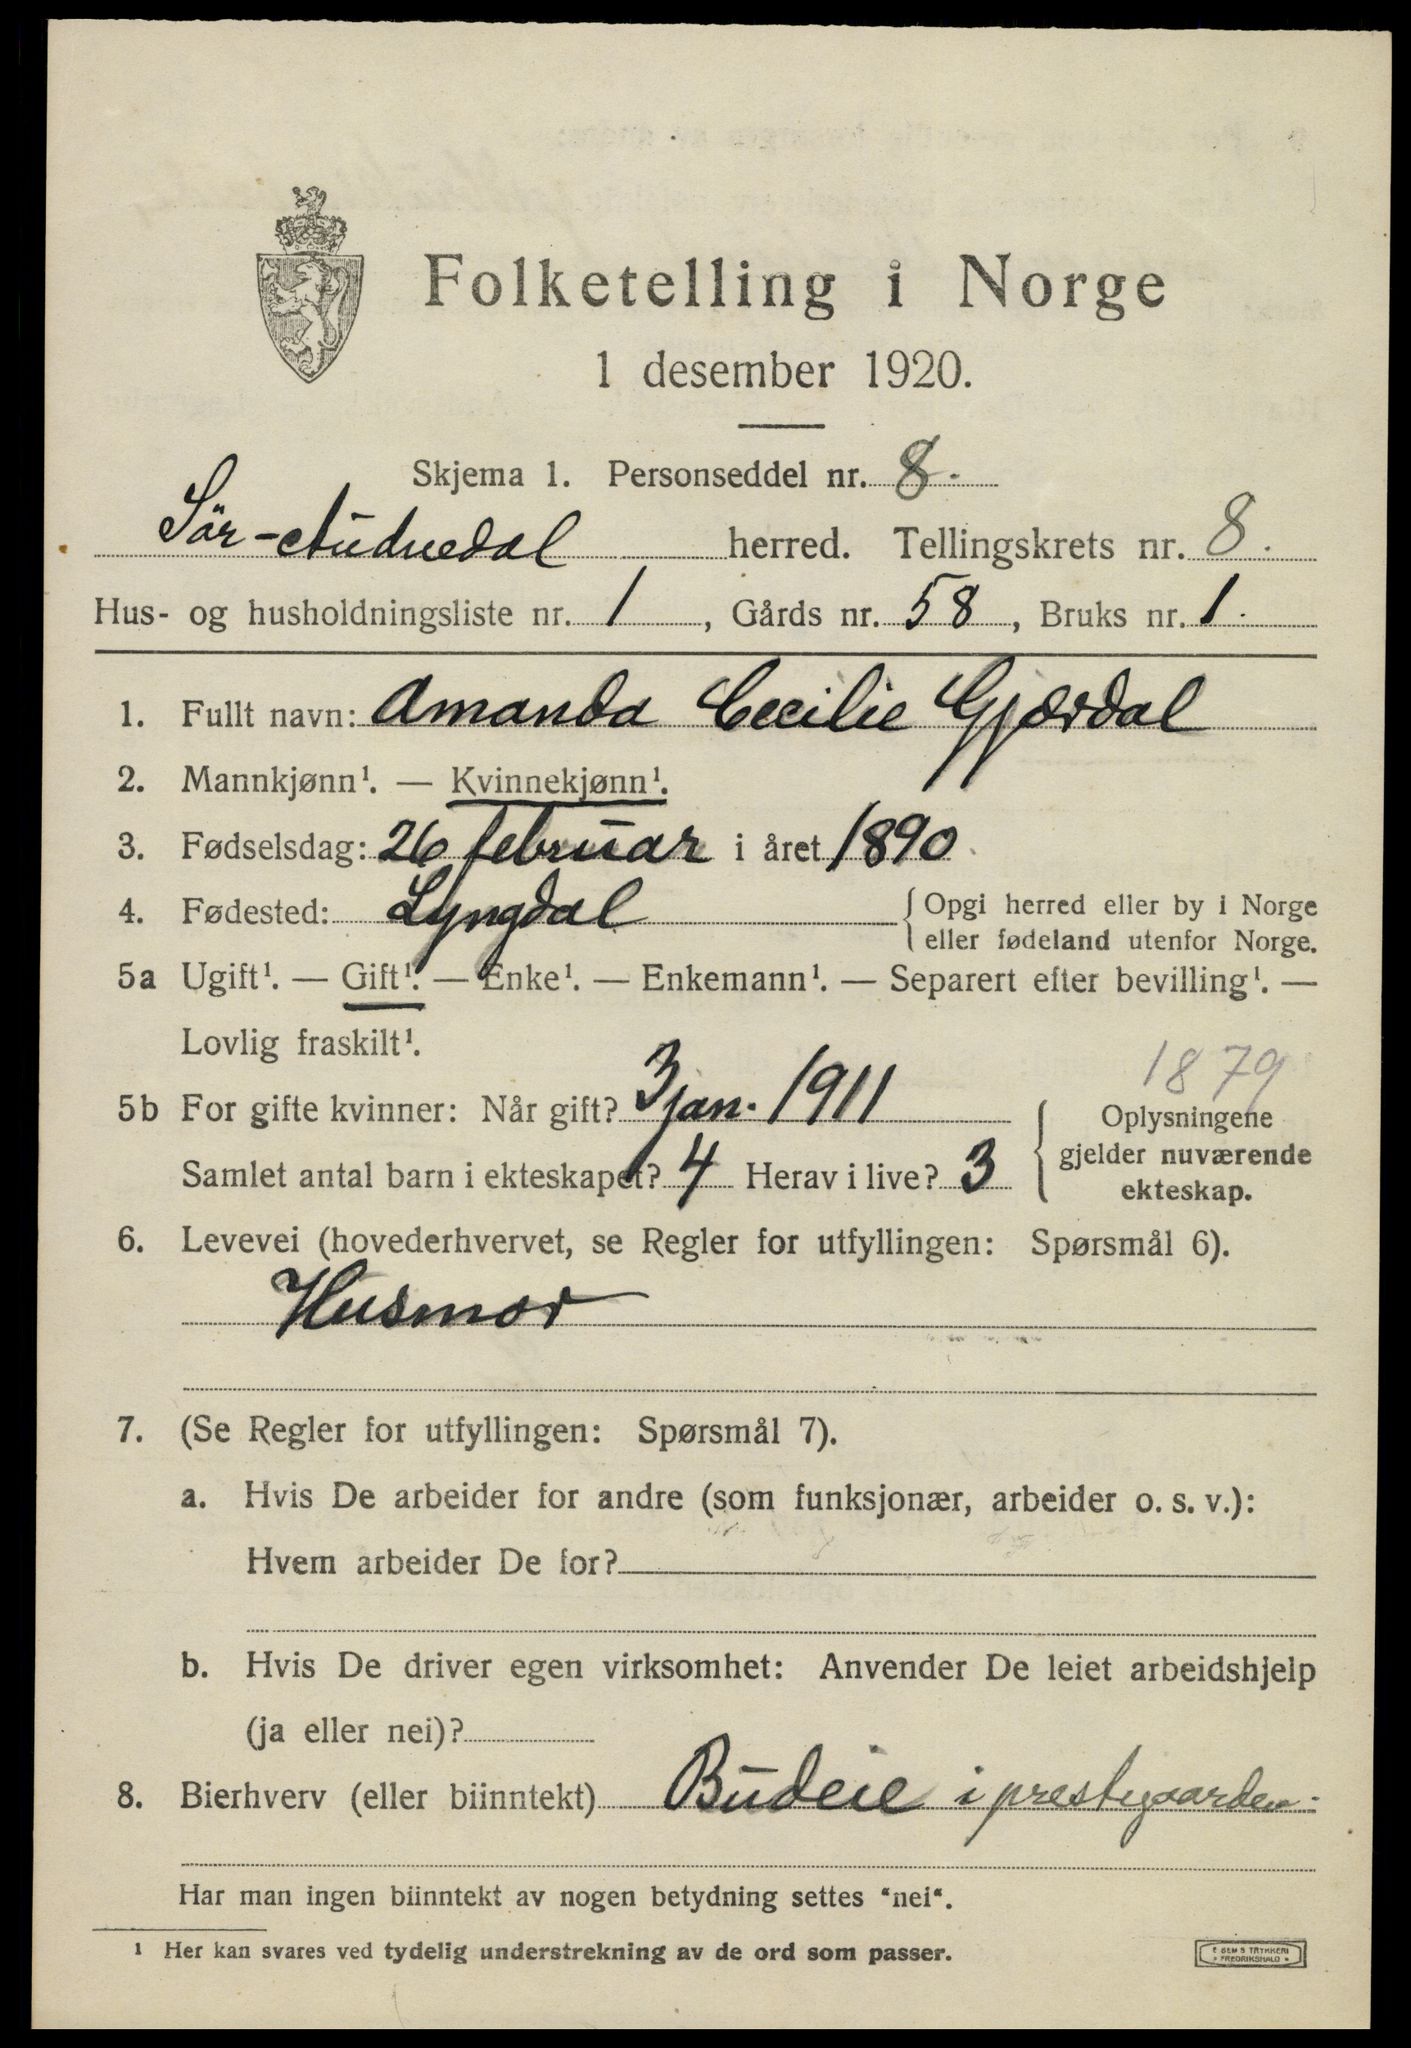 Folketelling i Norge
1 desember 1920.
Skjema 1. Personseddel nr. 8.
Sör-Audnedal herred. Tellingskrets nr. 8.
Hus- og husholdningsliste nr. 1, Gårds nr. 58, Bruks nr. 1.
1. Fullt navn: Amanda Cecilie Gjærdal
2. Mannkjønn¹. — Kvinnekjønn¹.
3. Fødselsdag: 26 februar i året 1890
4. Fødested: Lyngdal { Opgi herred eller by i Norge
eller fødeland utenfor Norge.
5a Ugift¹. — Gift¹. — Enke¹. — Enkemann¹. — Separert efter bevilling¹. —
Lovlig fraskilt¹.
1879
5b For gifte kvinner: Når gift? 3 jan. 1911
Samlet antal barn i ekteskapet? 4 Herav i live? 3
Oplysningene
gjelder nuværende
ekteskap.
6. Levevei (hovederhvervet, se Regler for utfyllingen: Spørsmål 6).
Husmor
7. (Se Regler for utfyllingen: Spørsmål 7).
a. Hvis De arbeider for andre (som funksjonær, arbeider o. s. v.):
Hvem arbeider De for?
b. Hvis De driver egen virksomhet: Anvender De leiet arbeidshjelp
(ja eller nei)?
8. Bierhverv (eller biinntekt) Budeie i prestegaarden.
Har man ingen biinntekt av nogen betydning settes "nei".
¹ Her kan svares ved tydelig understrekning av de ord som passer.
E SEM'S TRYKKERI
FREDRIKSHALD